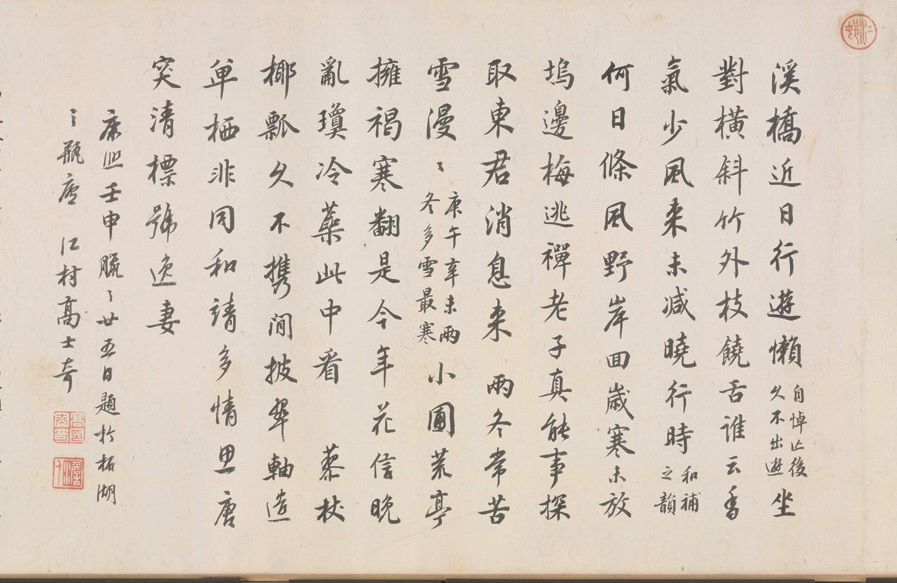 溪橋近日行遊懶自悼亡後久不出遊坐
對橫斜竹外枝饒舌誰云香
氣少風來未減曉行時和補之韻
何日條風野岸回歲寒未放
塢邊梅逃禪老子真能事探
取東君消息來 兩冬常苦
雪漫〻庚午辛未兩冬多雪最寒小圃荒亭
擁褐寒翻是今年花信晚
亂瓊冷蘂此中看 蔡杖
椰瓢久不携閒披翠軸造
單栖非同和靖多情思唐
突清標號逸妻
康熙壬申臘〻廿五日題於柘湖
〻瓶廬 江村高士奇
江邨